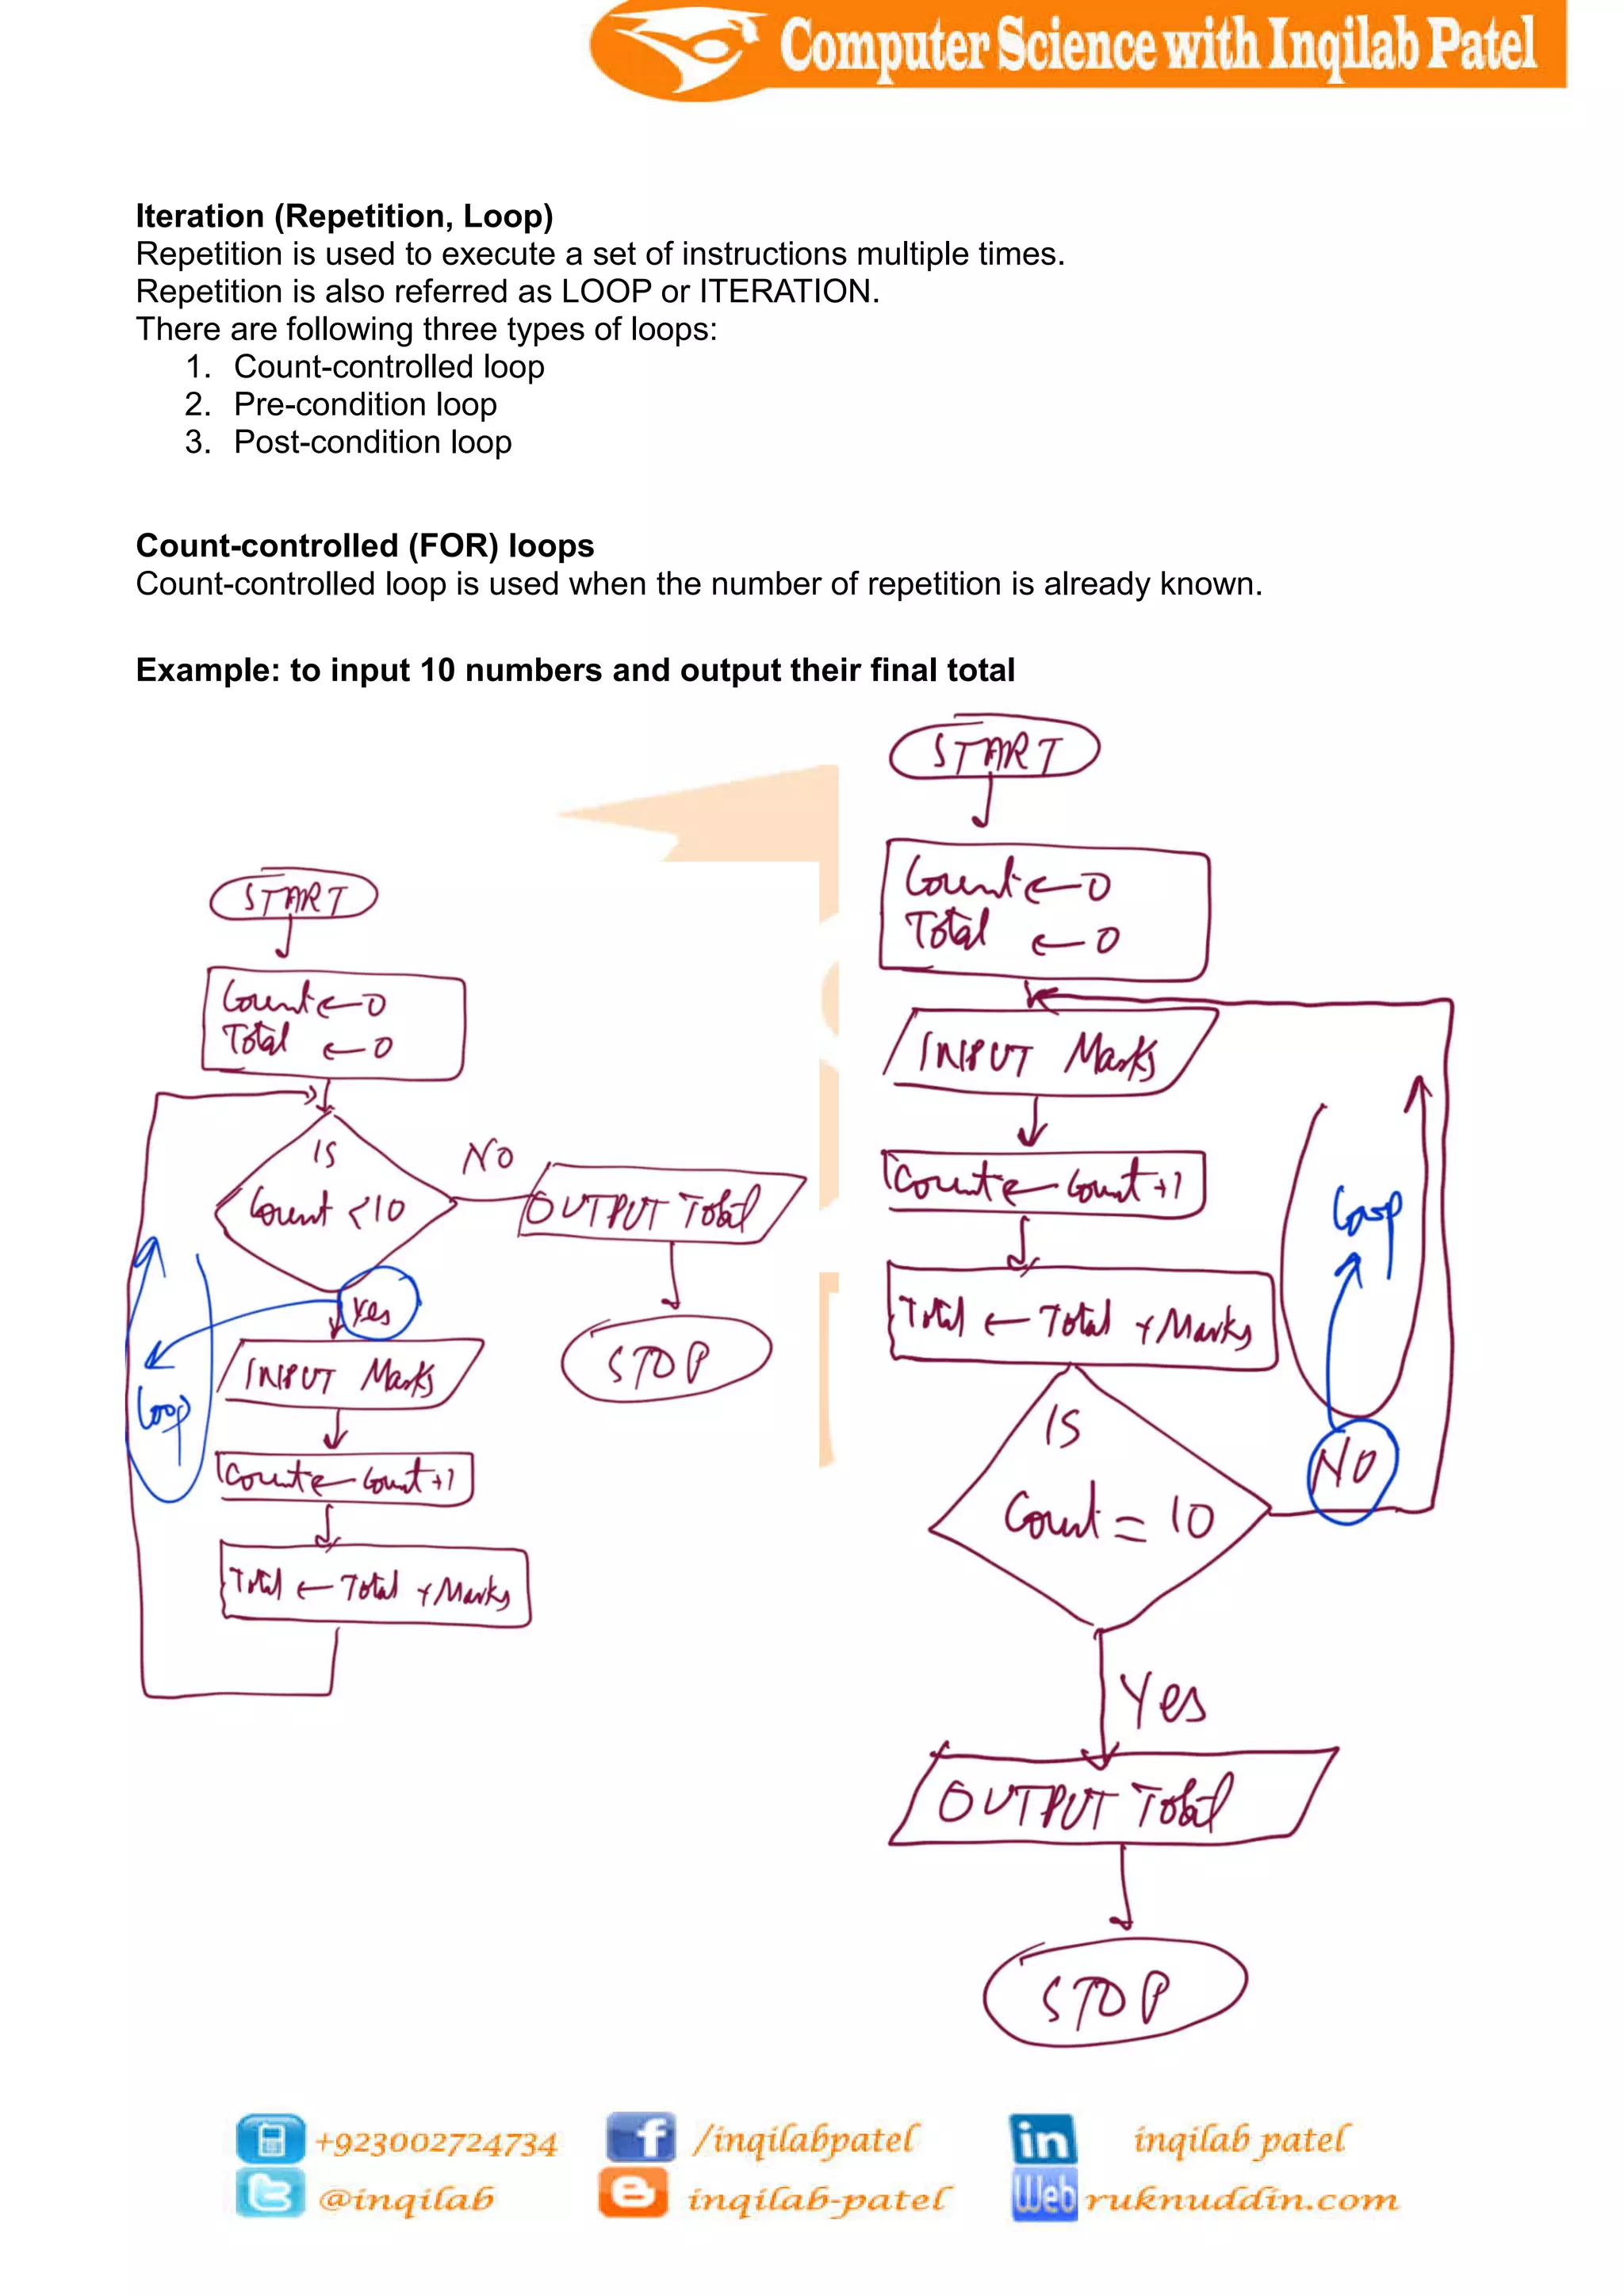 Computer Science with Inqilab Patel
Iteration (Repetition, Loop)
Repetition is used to execute a set of instructions multiple times.
Repetition is also referred as LOOP or ITERATION.
There are following three types of loops:
1. Count-controlled loop
2. Pre-condition loop
3. Post-condition loop
Count-controlled (FOR) loops
Count-controlled loop is used when the number of repetition is already known.
Example: to input 10 numbers and output their final total
START
Count ← 0
Total ← 0
IS
Count < 10
NO
OUTPUT Total
STOP
Yes
INPUT Marks
Loop
Count ← Count + 1
Total ← Total + Marks
START
Count ← 0
Total ← 0
INPUT Marks
Count ← Count + 1
Loop
Total ← Total + Marks
IS
Count = 10
NO
Yes
OUTPUT Total
STOP
+923002724734
/inqilabpatel
in
inqilab patel
@inqilab
inqilab-patel
Web
ruknuddin.com